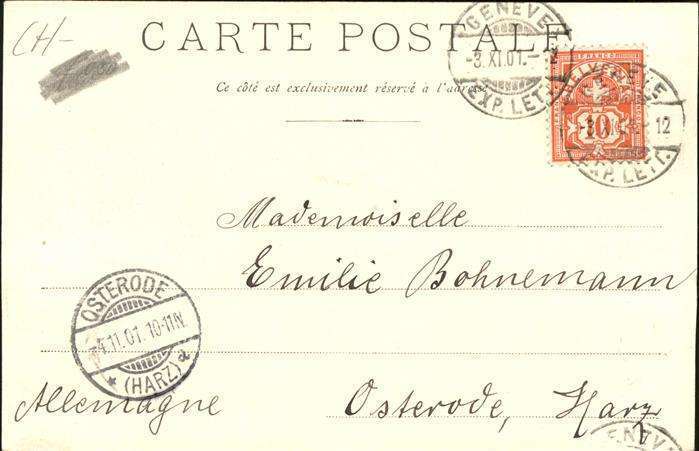 CH-
CARTE POSTALE
Ce côté est exclusivement réservé à l'adresse
GENÈVE
-3.XI.01.-
EXP. LETT.
FRANCO
HELVETIA
10
-3.XI.
12
EXP. LETT.
Mademoiselle
Emilie Bohnemann
OSTERODE
4.11.01. 10-11.N.
* (HARZ) a
Allemagne
Osterode, Harz